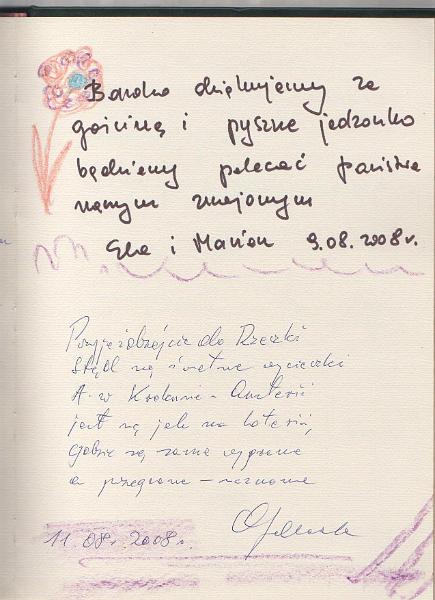 Bardzo dziękujemy za
gościnę i pyszne jedzonko
będziemy polecać państwa
naszym znajomym
Ela i Marian 9.08.2008r.
Przyjeżdżajcie do Rzeczki
stąd są świetne wycieczki
A w Krokusie -
jest się jak na loterii,
gdzie są same wygrane
a przegrane - nieznane
11.08.2008r.